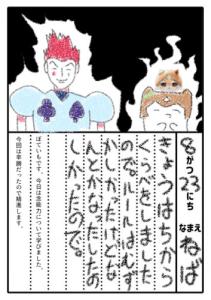 8がつ23にち
なまえ ねば
きょうはちから
くらべをしました
ので。ルールはむず
かしかったけどな
んとかなったしたの
しかったので。
ぼていもです。今日は念能力について学びました。
今回は辛勝だったので精進します。